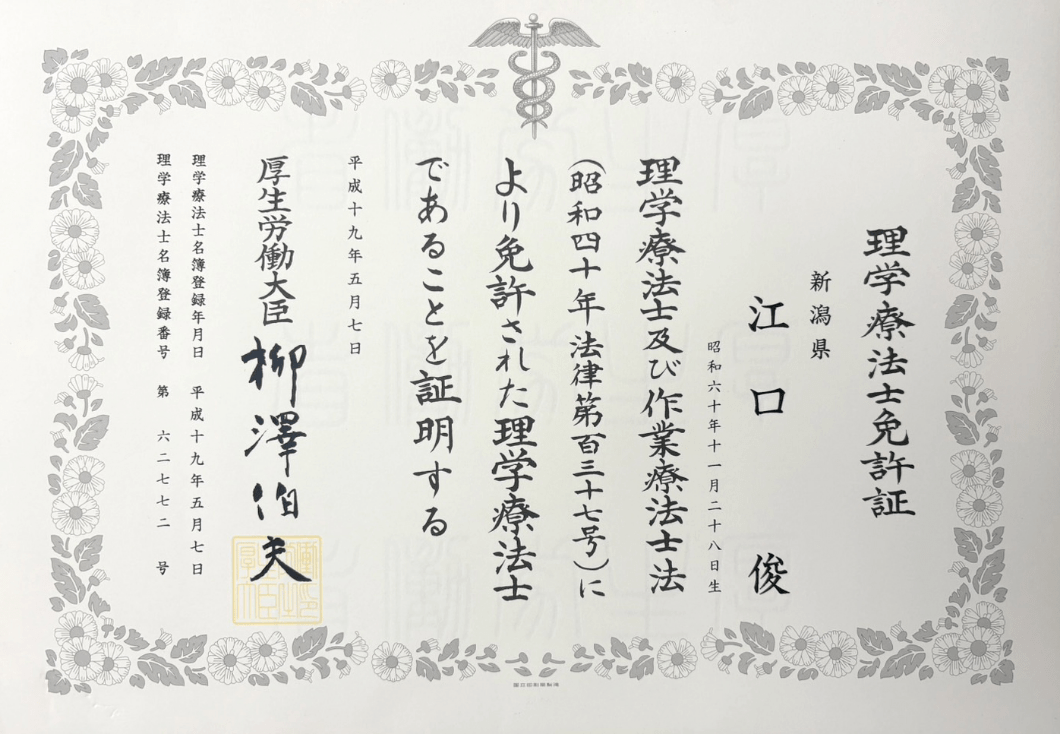 理学療法士免許証
新潟県
江口 俊
昭和六十年十一月二十八日生
理学療法士及び作業療法士法
(昭和四十年法律第百三十七号)に
より免許された理学療法士
であることを証明する
平成十九年五月七日
厚生労働大臣 柳澤伯夫
理学療法士名簿登録年月日 平成十九年五月七日
理学療法士名簿登録番号 第 六二七七二 号